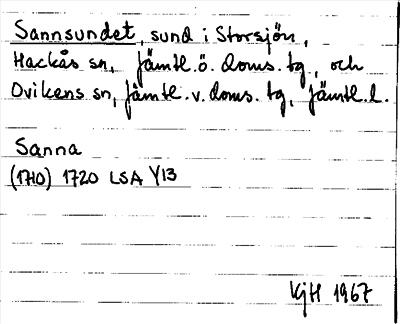 Sannsundet, sund i Storsjön,
Hackås sn, Jämtl. ö. doms. tg, och
Ovikens sn, Jämtl. v. doms. tg, Jämtl. l.
Sanna
(1710) 1720 LSA Y13
KjH 1967